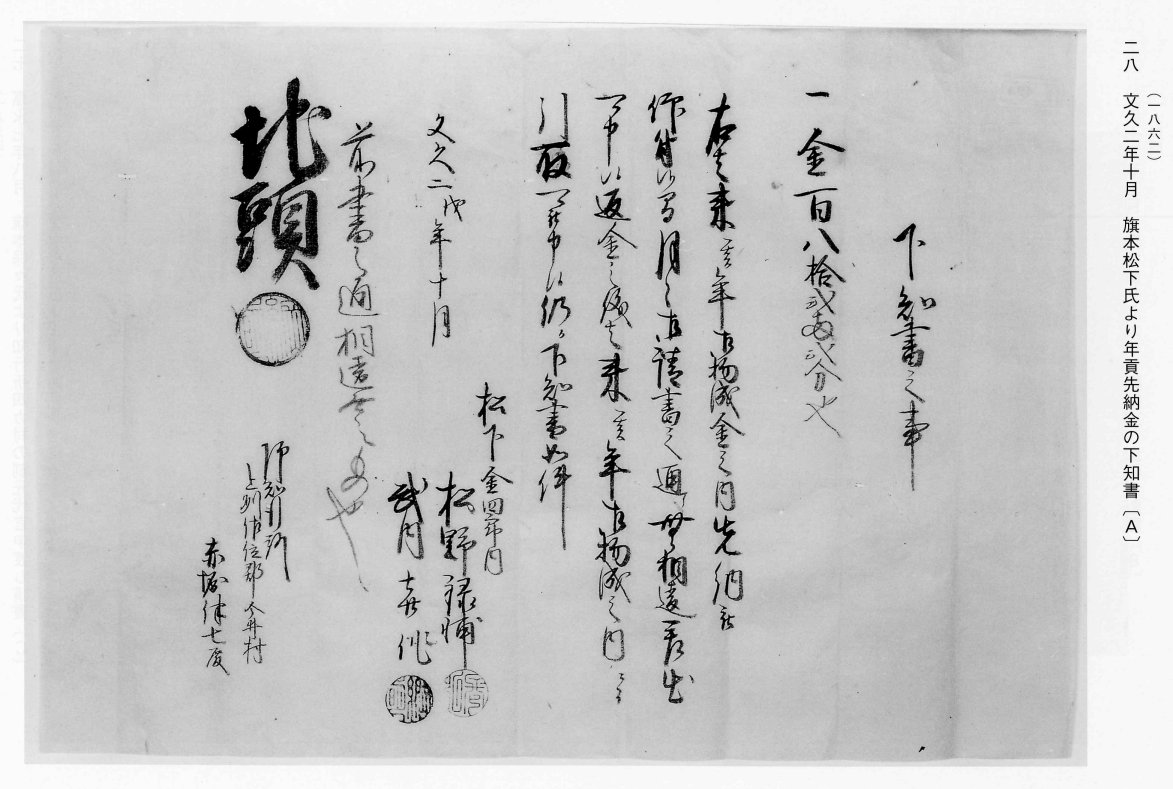 (一八六二)
二八 文久二年十月 旗本松下氏より年貢先納金の下知書〔A〕
下知書之事
一金百八拾弐両弐分也
右者来亥年御物成金之内先納被
仰付候間月々御請書之通無相違差出
可申候返金之儀者来亥年御物成之内ニ而
引取可申候仍而下知書如件
文久二戌年十月
松下金四郎内
松野録輔
武内喜作
前書之通相違無之もの也
地頭
御知行所
上州佐位郡今井村
赤堀
七